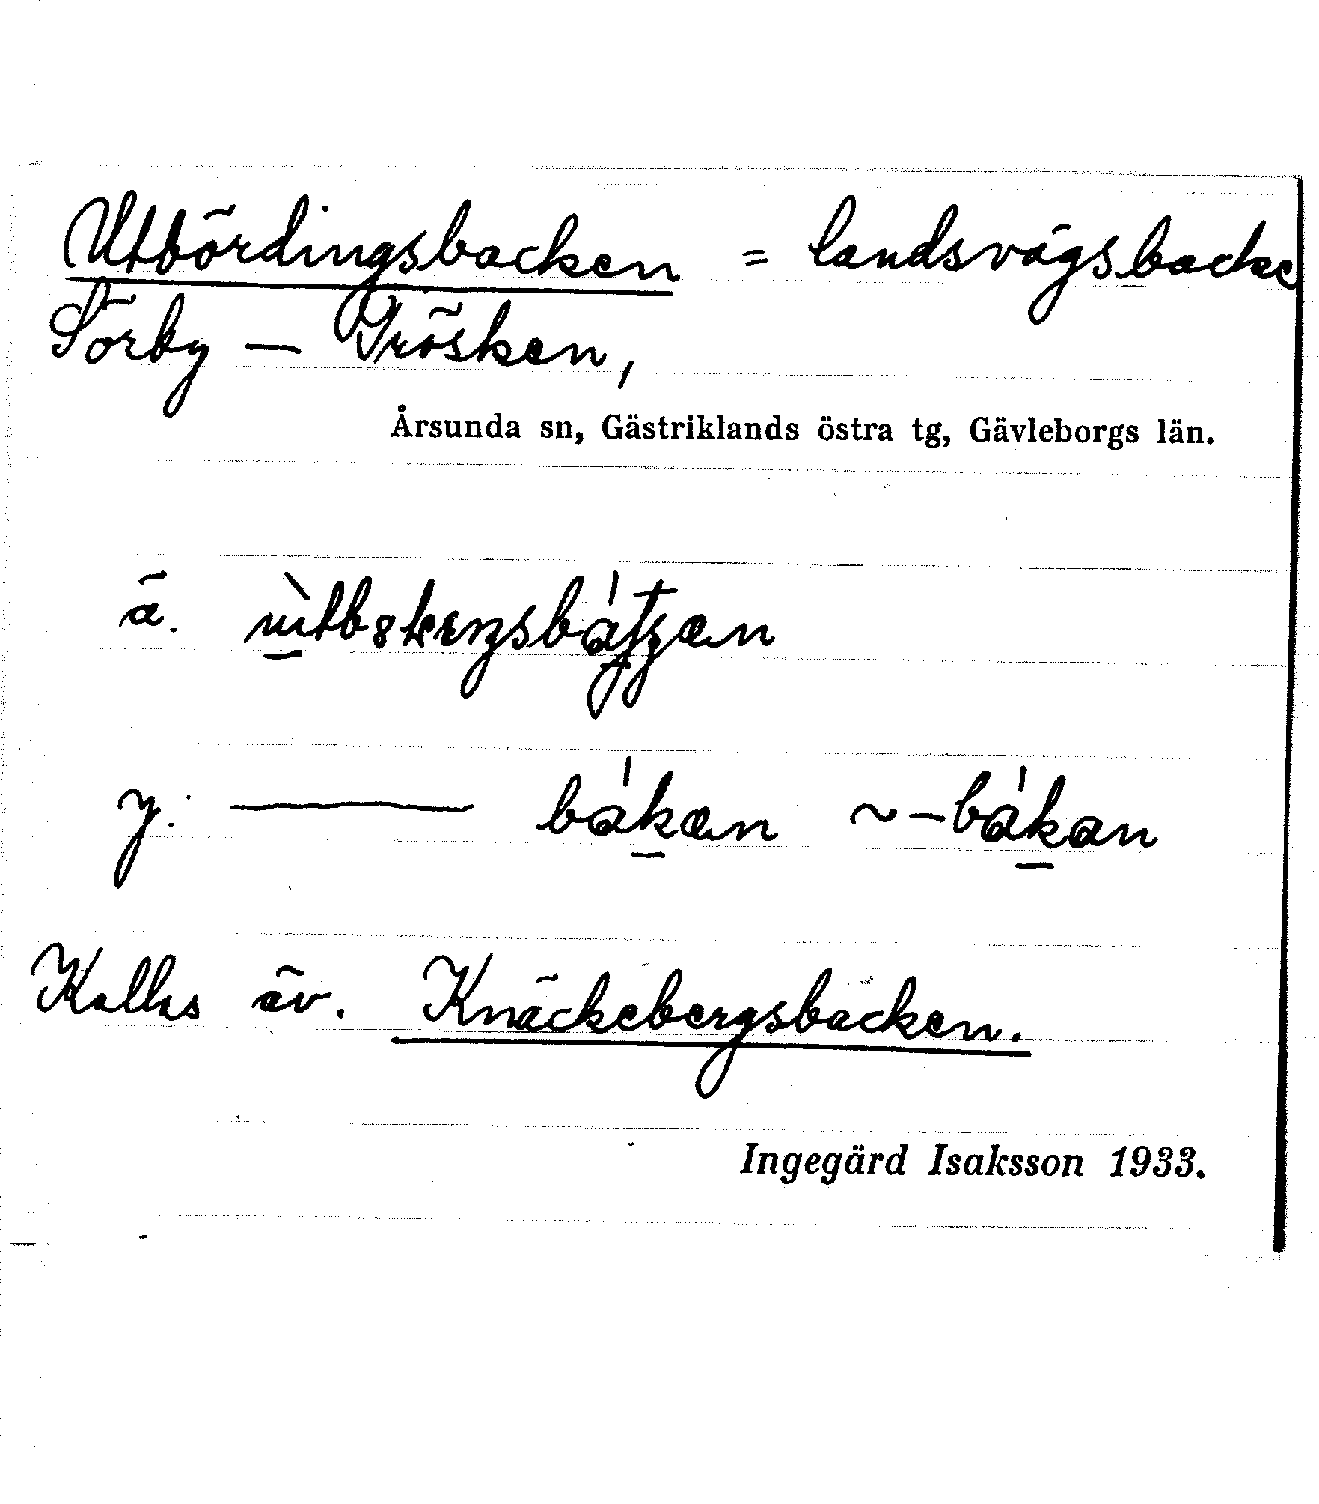 Utbördingsbacken = landsvägsbacke
Sörby — Trösken,
Årsunda sn, Gästriklands östra tg, Gävleborgs län.
ä.
y. ——— bákan ~ –bákan
Kallas äv. Knäckebergsbacken.
Ingegärd Isaksson 1933.